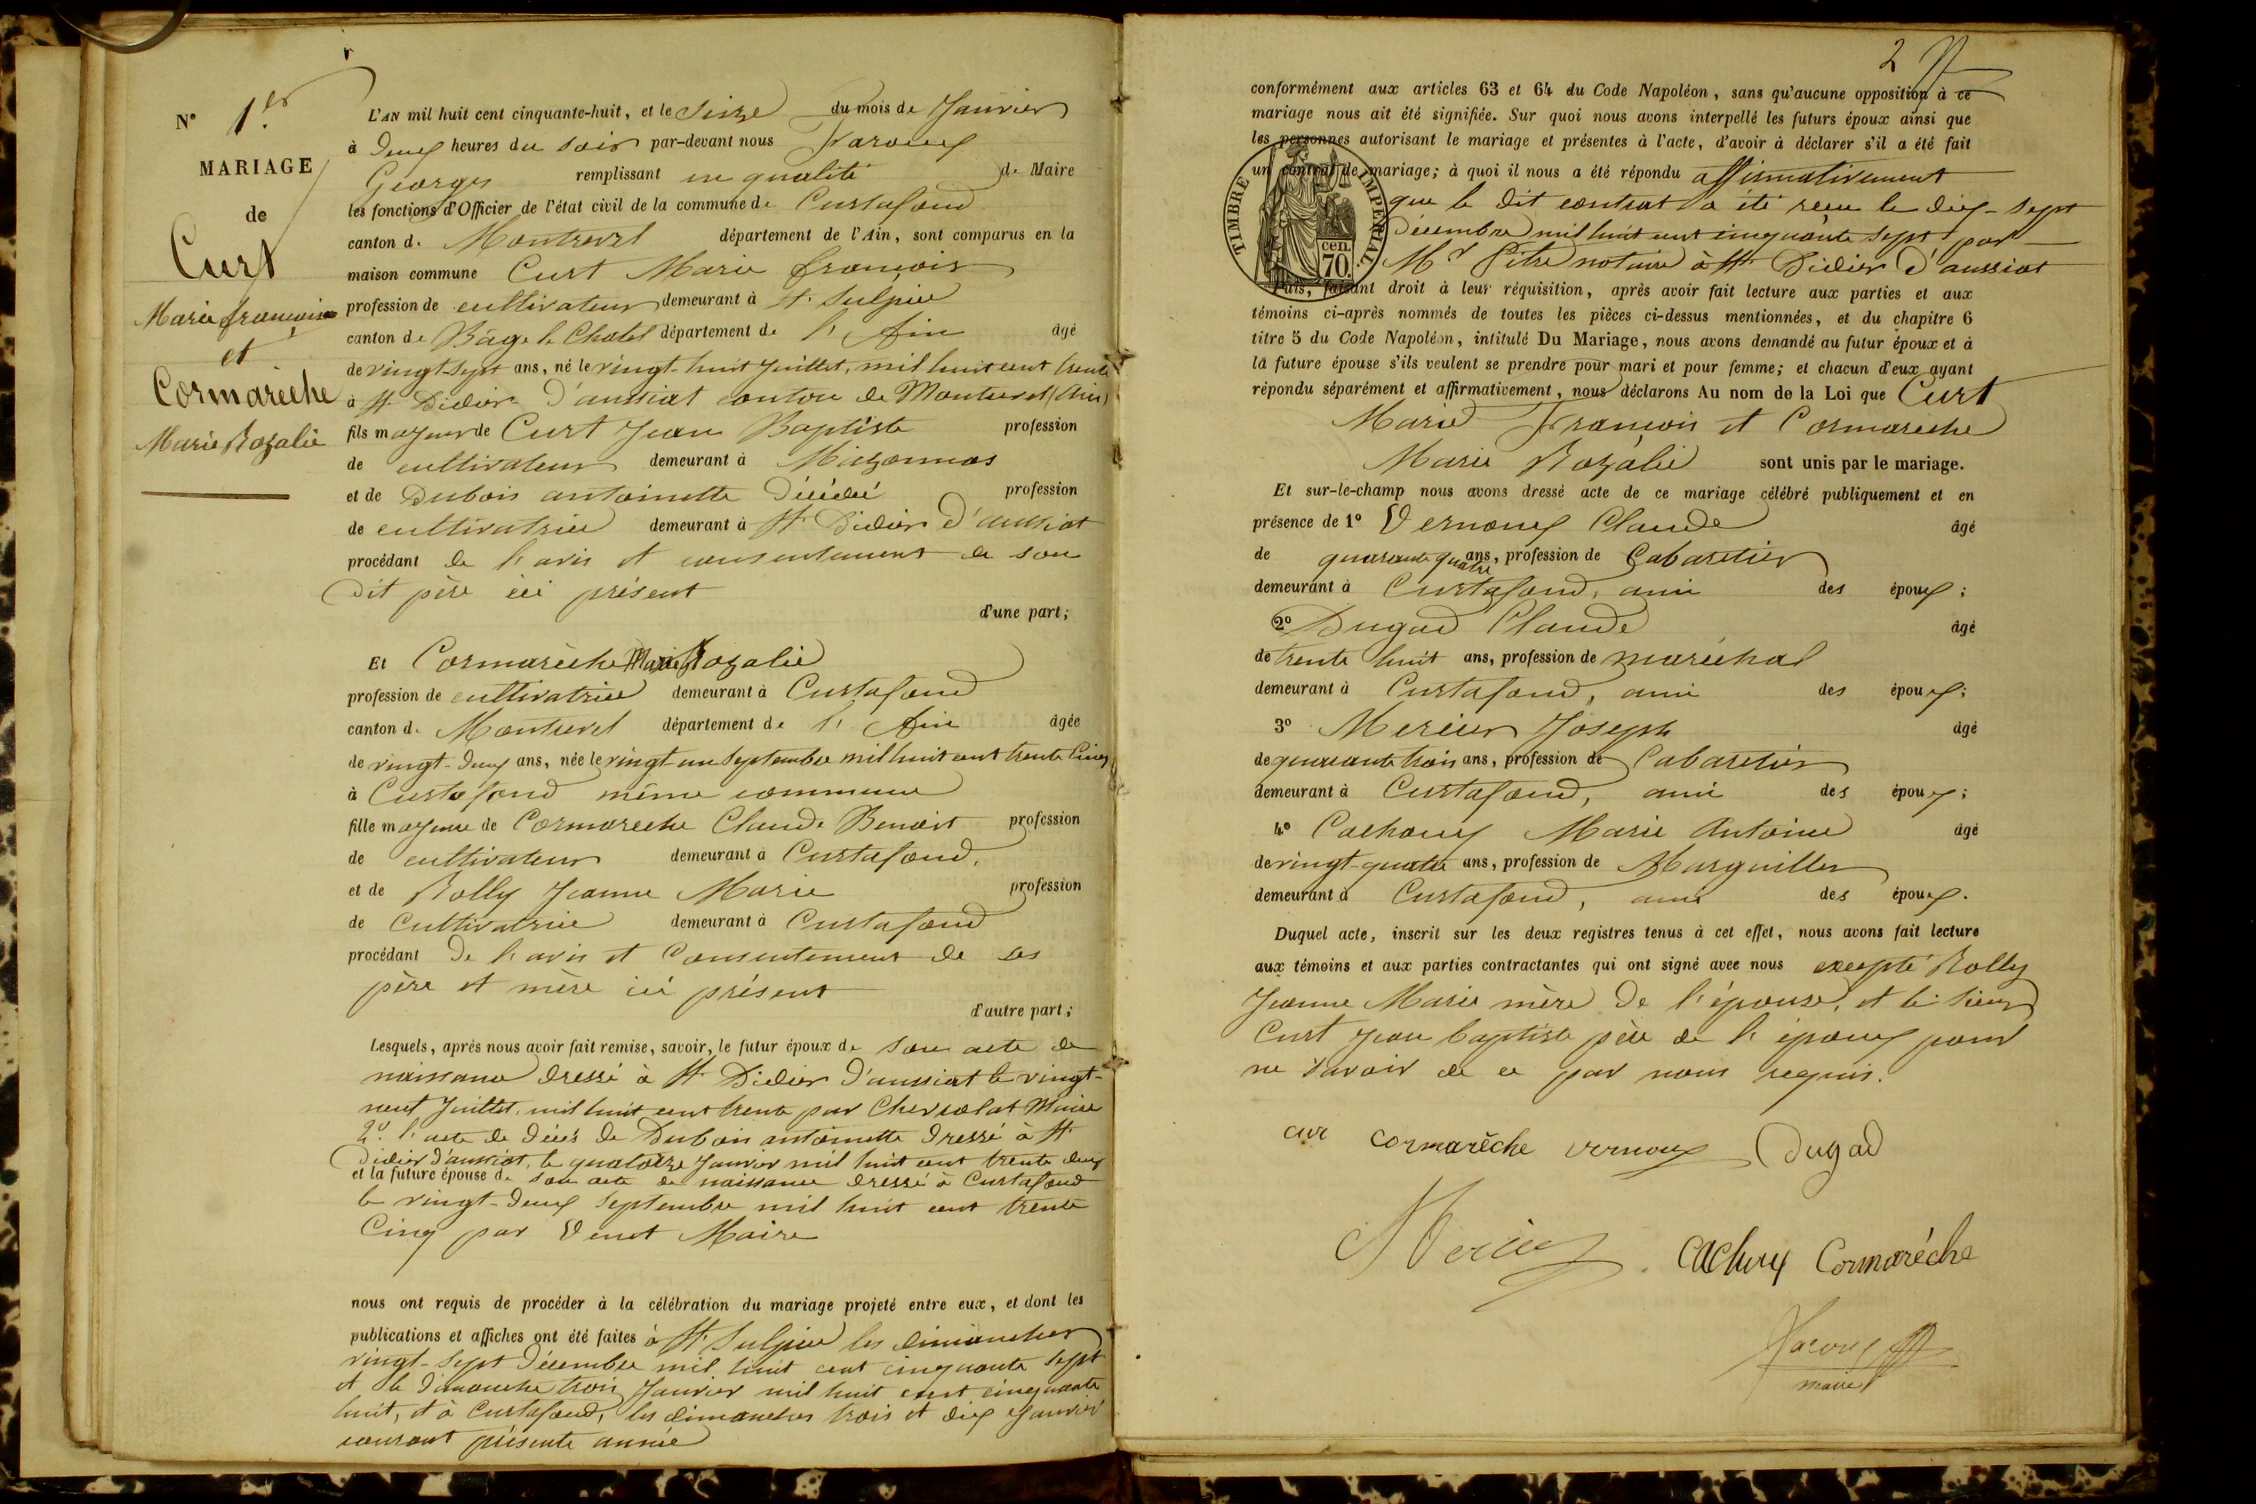 N° 1er
MARIAGE
de
Curt
Marie françois
et
Cormarèche
Marie Rozalie
L'AN mil huit cent cinquante-huit, et le Seize du mois de Janvier
à Deux heures du soir par-devant nous
Georges remplissant en qualité de Maire
les fonctions d'Officier de l'état civil de la commune de Curtafond
canton de Montrevel département de l'Ain, sont comparus en la
maison commune Curt Marie françois
profession de cultivateur demeurant à St Sulpice
canton de Bâgé le Chatel département de l'Ain âgé
de vingt-sept ans, né le vingt-huit Juillet, mil huit cent trente
à St Didier d'aussiat canton de Montrevel (Ain)
fils majeur de Curt Jean Baptiste profession
de cultivateur demeurant à
et de Dubois antoinette Décédé profession
de cultivatrice demeurant à St Didier d'aussiat
procédant de l'avis et consentement de son
Dit père ici présent
d'une part;
Et Cormarèche Marie Rozalie
profession de cultivatrice demeurant à Curtafond
canton de Montrevel département de l'Ain âgée
de vingt-Deux ans, née le vingt-un Septembre mil huit cent trente Cinq
à Curtafond même commune
fille majeure de Cormareche Claude Benoit profession
de cultivateur demeurant à Curtafond,
et de Rolly Jeanne Marie profession
de Cultivatrice demeurant à Curtafond
procédant De l'avis et Consentement de ses
père et mère ici présent
d'autre part;
Lesquels, après nous avoir fait remise, savoir, le futur époux de son acte de
naissance dressé à St Didier d'aussiat le vingt-
neuf Juillet, mil huit cent trente par Maire
2° l'acte de décès de Dubois antoinette Dressé à St
Didier d'aussiat, le quatorze Janvier mil huit cent trente deux
et la future épouse de son acte de naissance dressé à Curtafond
le vingt-Deux Septembre mil huit cent trente
Cinq par Venet Maire
nous ont requis de procéder à la célébration du mariage projeté entre eux, et dont les
publications et affiches ont été faites à St Sulpice les dimanches
vingt-sept Décembre mil huit cent cinquante sept
et le Dimanche trois Janvier mil huit cent cinquante
huit, et à Curtafond, les dimanches trois et dix Janvier
courant présente année
2
conformément aux articles 63 et 64 du Code Napoléon, sans qu'aucune opposition à ce
mariage nous ait été signifiée. Sur quoi nous avons interpellé les futurs époux ainsi que
les personnes autorisant le mariage et présentes à l'acte, d'avoir à déclarer s'il a été fait
un contrat de mariage; à quoi il nous a été répondu affirmativement
que le dit contrat a été reçu le dix-sept
Décembre mil huit cent cinquante sept par
Me Pitre notaire à St Didier d'aussiat
TIMBRE IMPÉRIAL
cen. 70.
Puis, faisant droit à leur réquisition, après avoir fait lecture aux parties et aux
témoins ci-après nommés de toutes les pièces ci-dessus mentionnées, et du chapitre 6
titre 5 du Code Napoléon, intitulé Du Mariage, nous avons demandé au futur époux et à
la future épouse s'ils veulent se prendre pour mari et pour femme; et chacun d'eux ayant
répondu séparément et affirmativement, nous déclarons Au nom de la Loi que Curt
Marie François et Cormareche
Marie Rozalie sont unis par le mariage.
Et sur-le-champ nous avons dressé acte de ce mariage célébré publiquement et en
présence de 1° Vernoux Claude âgé
de quarante quatre ans, profession de Cabaretier
demeurant à Curtafond, ami des époux;
2° Dugad Claude âgé
de trente huit ans, profession de maréchal
demeurant à Curtafond, ami des époux;
3° Mercier Joseph âgé
de quarante trois ans, profession de Cabaretier
demeurant à Curtafond, ami des époux;
4° Cachoux Marie Antoine âgé
de vingt-quatre ans, profession de Marguiller
demeurant à Curtafond, ami des époux.
Duquel acte, inscrit sur les deux registres tenus à cet effet, nous avons fait lecture
aux témoins et aux parties contractantes qui ont signé avec nous excepté Rolly
Jeanne Marie mère De l'épouse, et le sieur
Curt Jean baptiste père de l'époux pour
ne savoir de ce par nous requis.
cur cormarêche vernoux Dugad
Mercier cachoux Cormaréche
maire